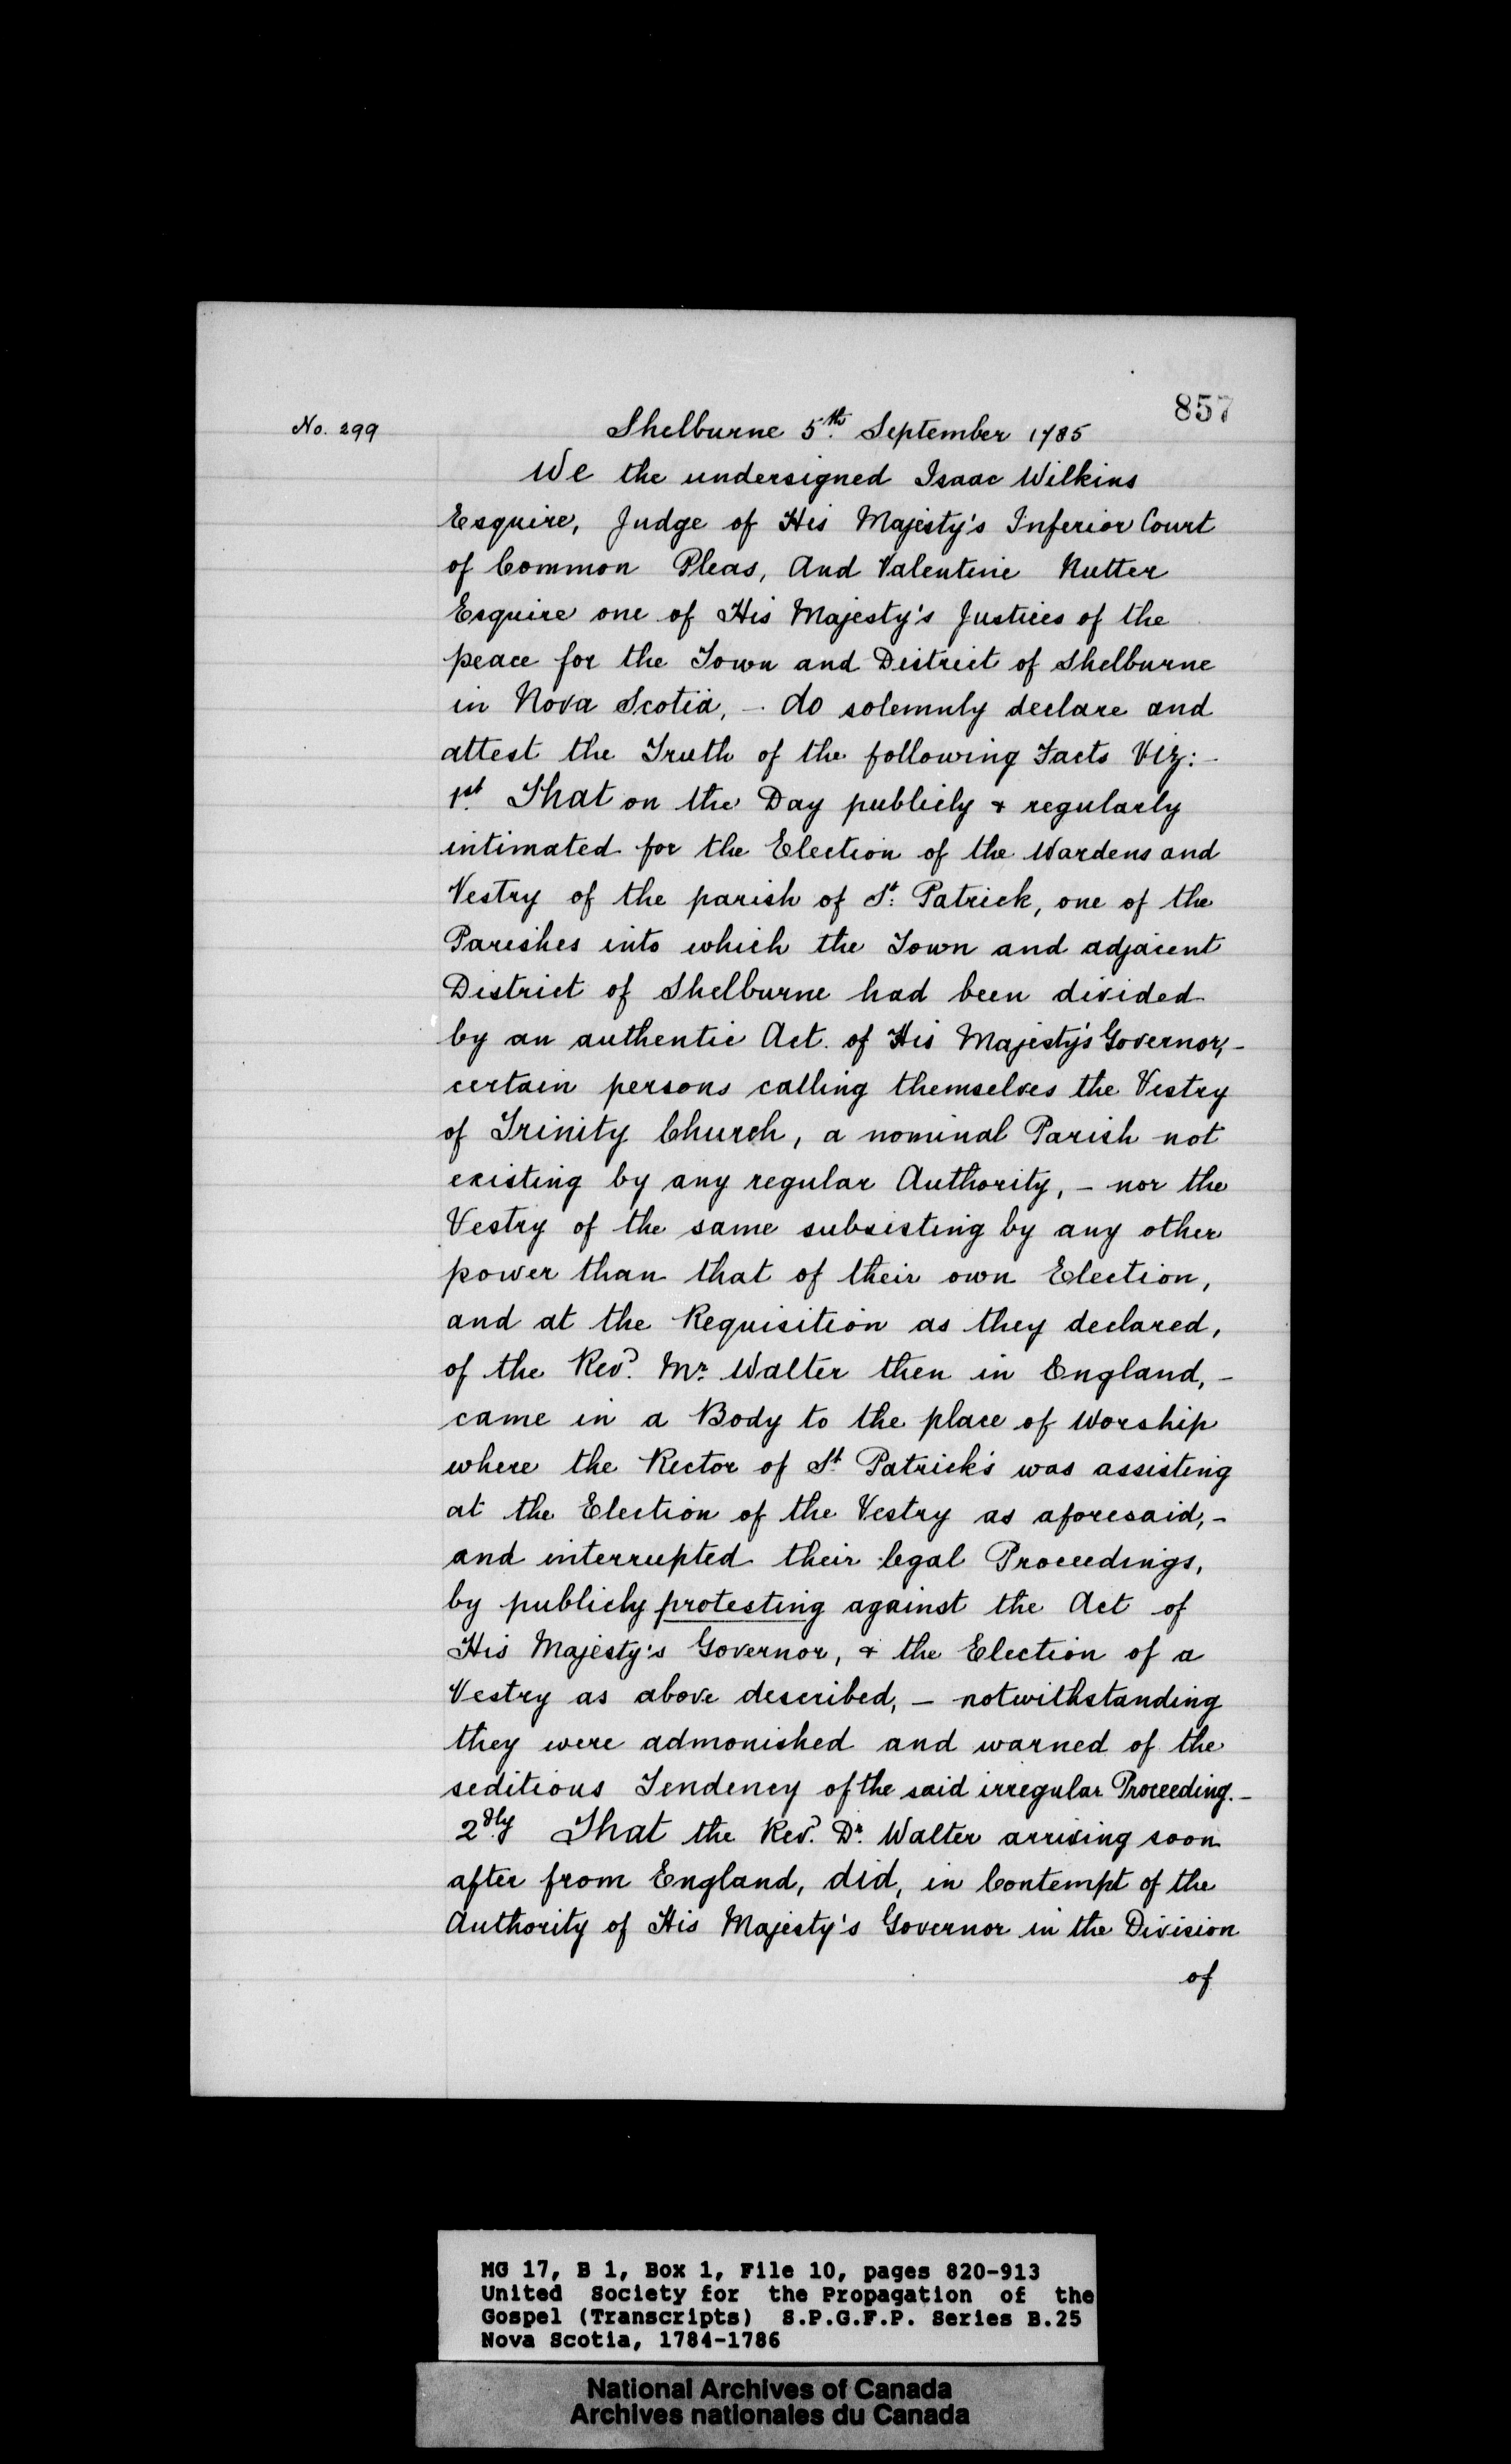 857
No. 299
Shelburne 5th. September 1785
We the undersigned Isaac Wilkins
Esquire, Judge of His Majesty's Inferior Court
of Common Pleas, And Valentine Nutter
Esquire one of His Majesty's Justices of the
peace for the Town and District of Shelburne
in Nova Scotia, - do solemnly declare and
attest the Truth of the following Facts Viz: -
1st. That on the Day publicly & regularly
intimated for the Election of the Wardens and
Vestry of the parish of St. Patrick, one of the
Parishes into which the Town and adjacent
District of Shelburne had been divided
by an authentic Act of His Majesty's Governor, -
certain persons calling themselves the Vestry
of Trinity Church, a nominal Parish not
existing by any regular Authority, - nor the
Vestry of the same subsisting by any other
power than that of their own Election,
and at the Requisition as they declared,
of the Revd. Mr. Walter then in England, -
came in a Body to the place of Worship
where the Rector of St. Patrick's was assisting
at the Election of the Vestry as aforesaid, -
and interrupted their legal Proceedings,
by publicly protesting against the Act of
His Majesty's Governor, & the Election of a
Vestry as above described, - notwithstanding
they were admonished and warned of the
seditious Tendency of the said irregular Proceeding. -
2dly. That the Revd. Dr. Walter arriving soon
after from England, did, in Contempt of the
Authority of His Majesty's Governor in the Division
of
MG 17, B 1, Box 1, File 10, pages 820-913
United Society for the Propagation of the
Gospel (Transcripts) S.P.G.F.P. Series B.25
Nova Scotia, 1784-1786
National Archives of Canada
Archives nationales du Canada